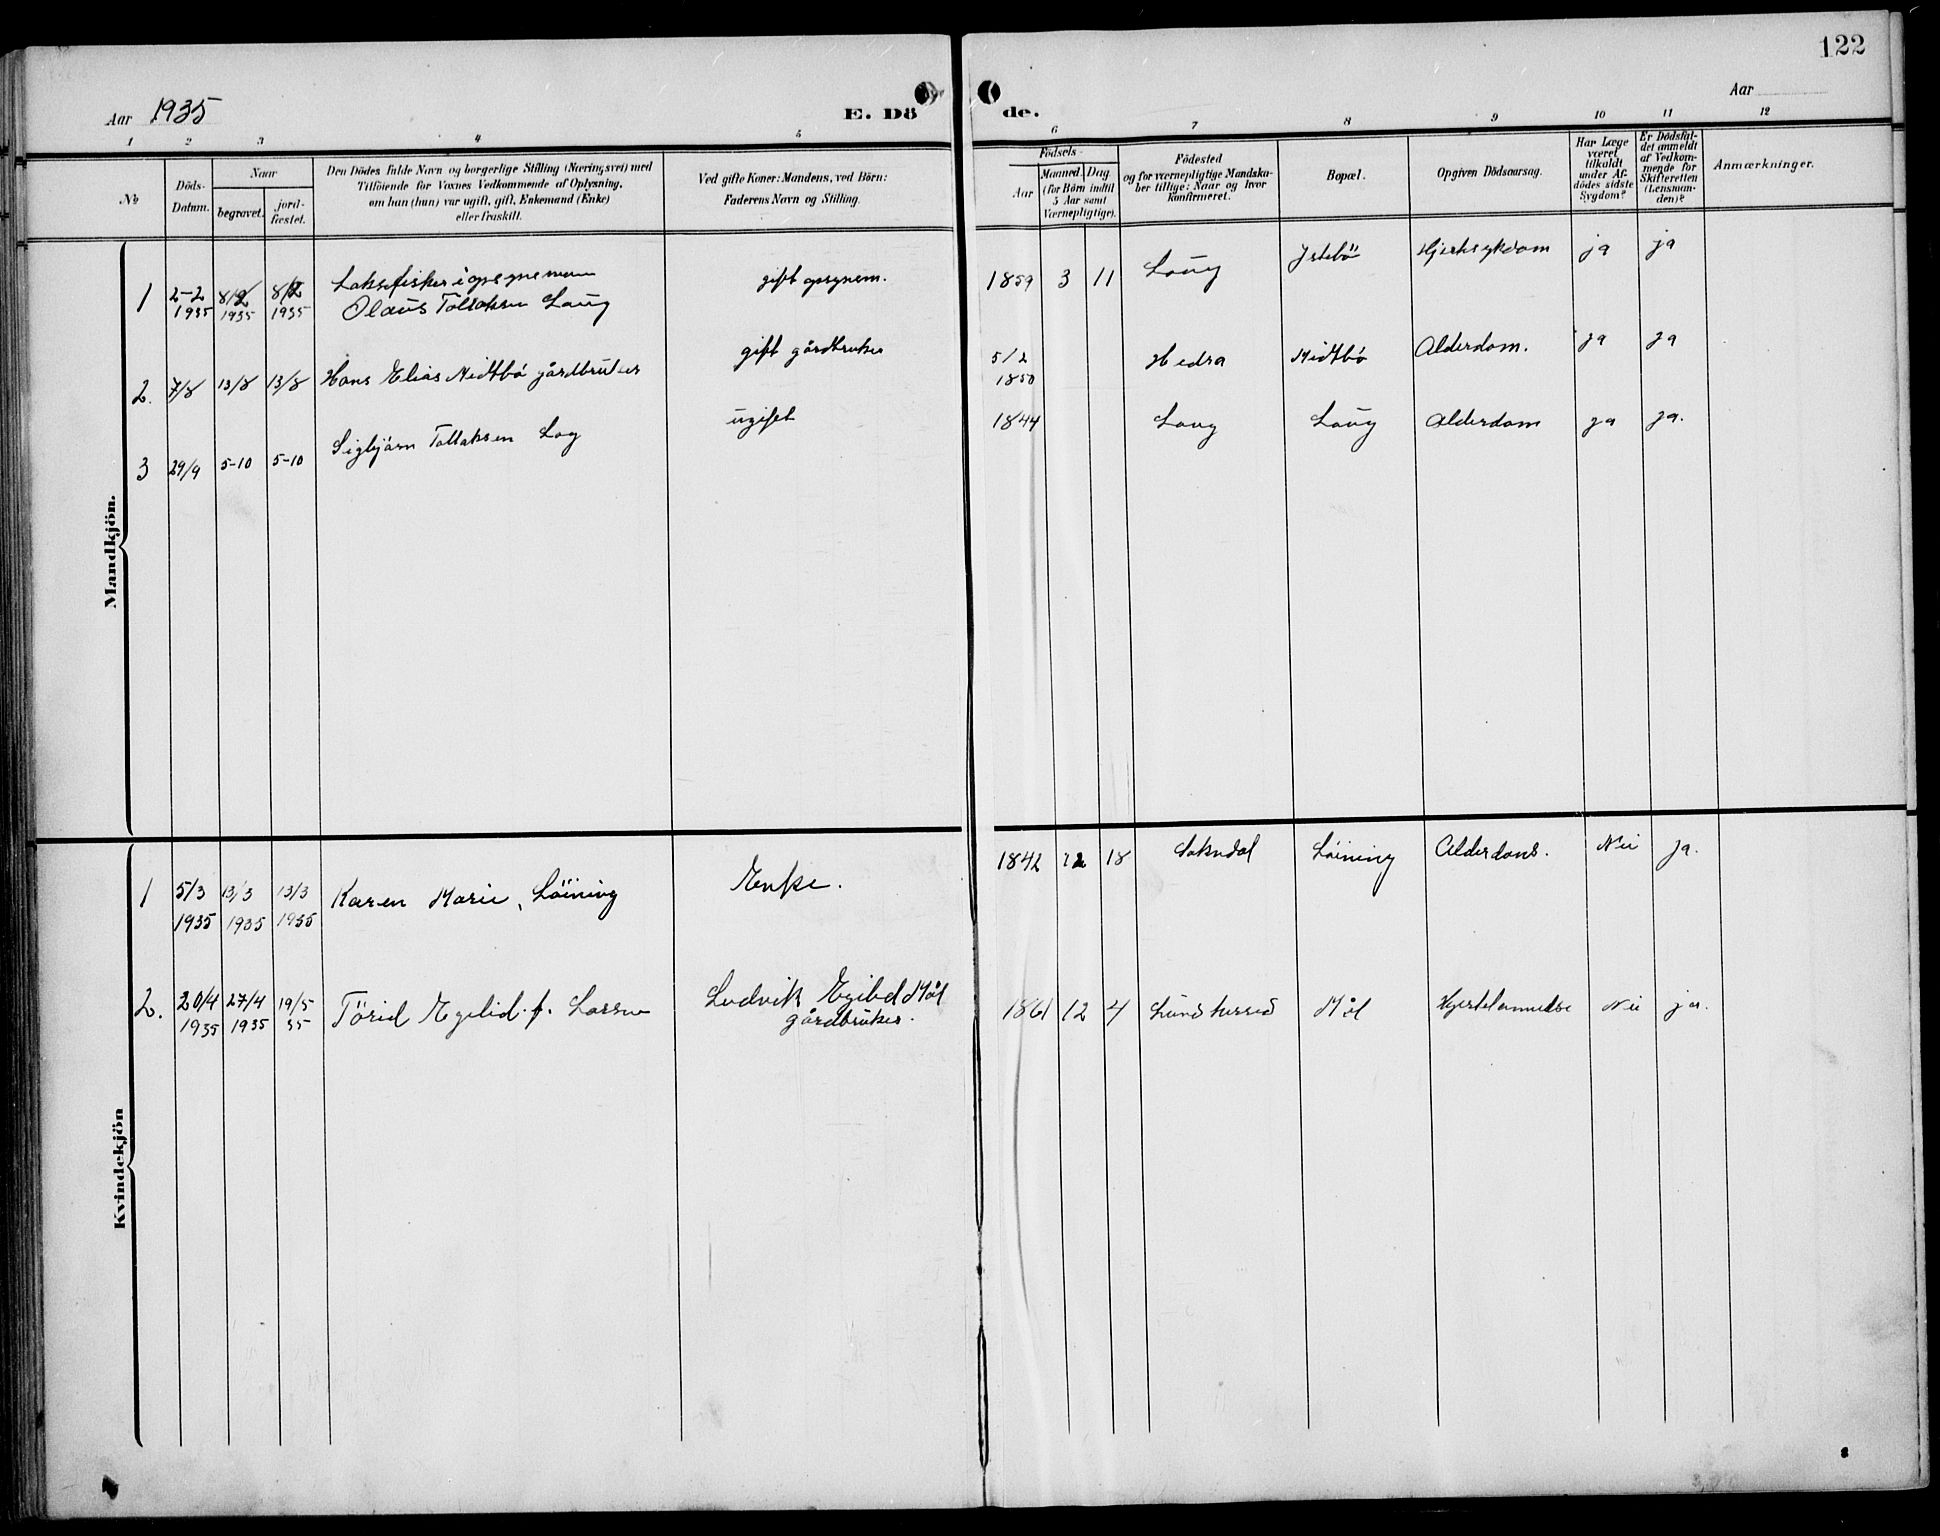 122
Aar 1935
E. Dö
de.
Aar
1 2 3 4 5 6 7 8 9 10 11 12
No
Döds-
Datum.
Naar
begravet.
jord-
fæstet.
Den Dödes fulde Navn og borgerlige Stilling (Næringsvei) med
Tilföiende for Voxnes Vedkommende af Oplysning,
om han (hun) var ugift, gift, Enkemand (Enke)
eller fraskilt.
Ved gifte Koner: Mandens, ved Börn:
Faderens Navn og Stilling.
Födsels-
Aar
Maaned. Dag
(for Börn indtil
5 Aar samt
Værnepligtige).
Födested
og for værnepligtige Mandska-
ber tillige: Naar og hvor
konfirmeret.
Bopæl.
Opgiven Dödsaarsag.
Har Læge
været
tilkaldt
under Af-
dödes sidste
Sygdom?
Er Dödsfal-
det anmeldt
af Vedkom-
mende for
Skifteretten
(Lensman-
den)?
Anmærkninger.
Mandkjön.
1 2-2 1935 8/2 1935 8/2 1935
Laksefisker
Olaus Tollaksen Laug
gift opsynem.
1859 3 11 Laug Istebö Hjertesykdom ja ja
2. 7/8 13/8 13/8 Hans Elias Midtbö gårdbruker
gift gårdbruker
5/2 1850 Hedra Midtbö Alderdom. ja ja
3 29/9 5-10 5-10 Sigbjörn Tollaksen Log
ugift
1844 Laug Laug Alderdom ja ja.
Kvindekjön
1 5/3 1935 13/3 1935 13/3 1935 Karen Marie, Löining
Enke.
1842 12 18 Sokndal Löining Alderdons. Nei ja.
2. 20/4 1935 27/4 1935 19/5 35 Törid Egelid f. Larsen
Ludvik Egelid Mål
gårdbruker.
1861 12 4 Lund herred Mål Hjertelammelse Nei ja.